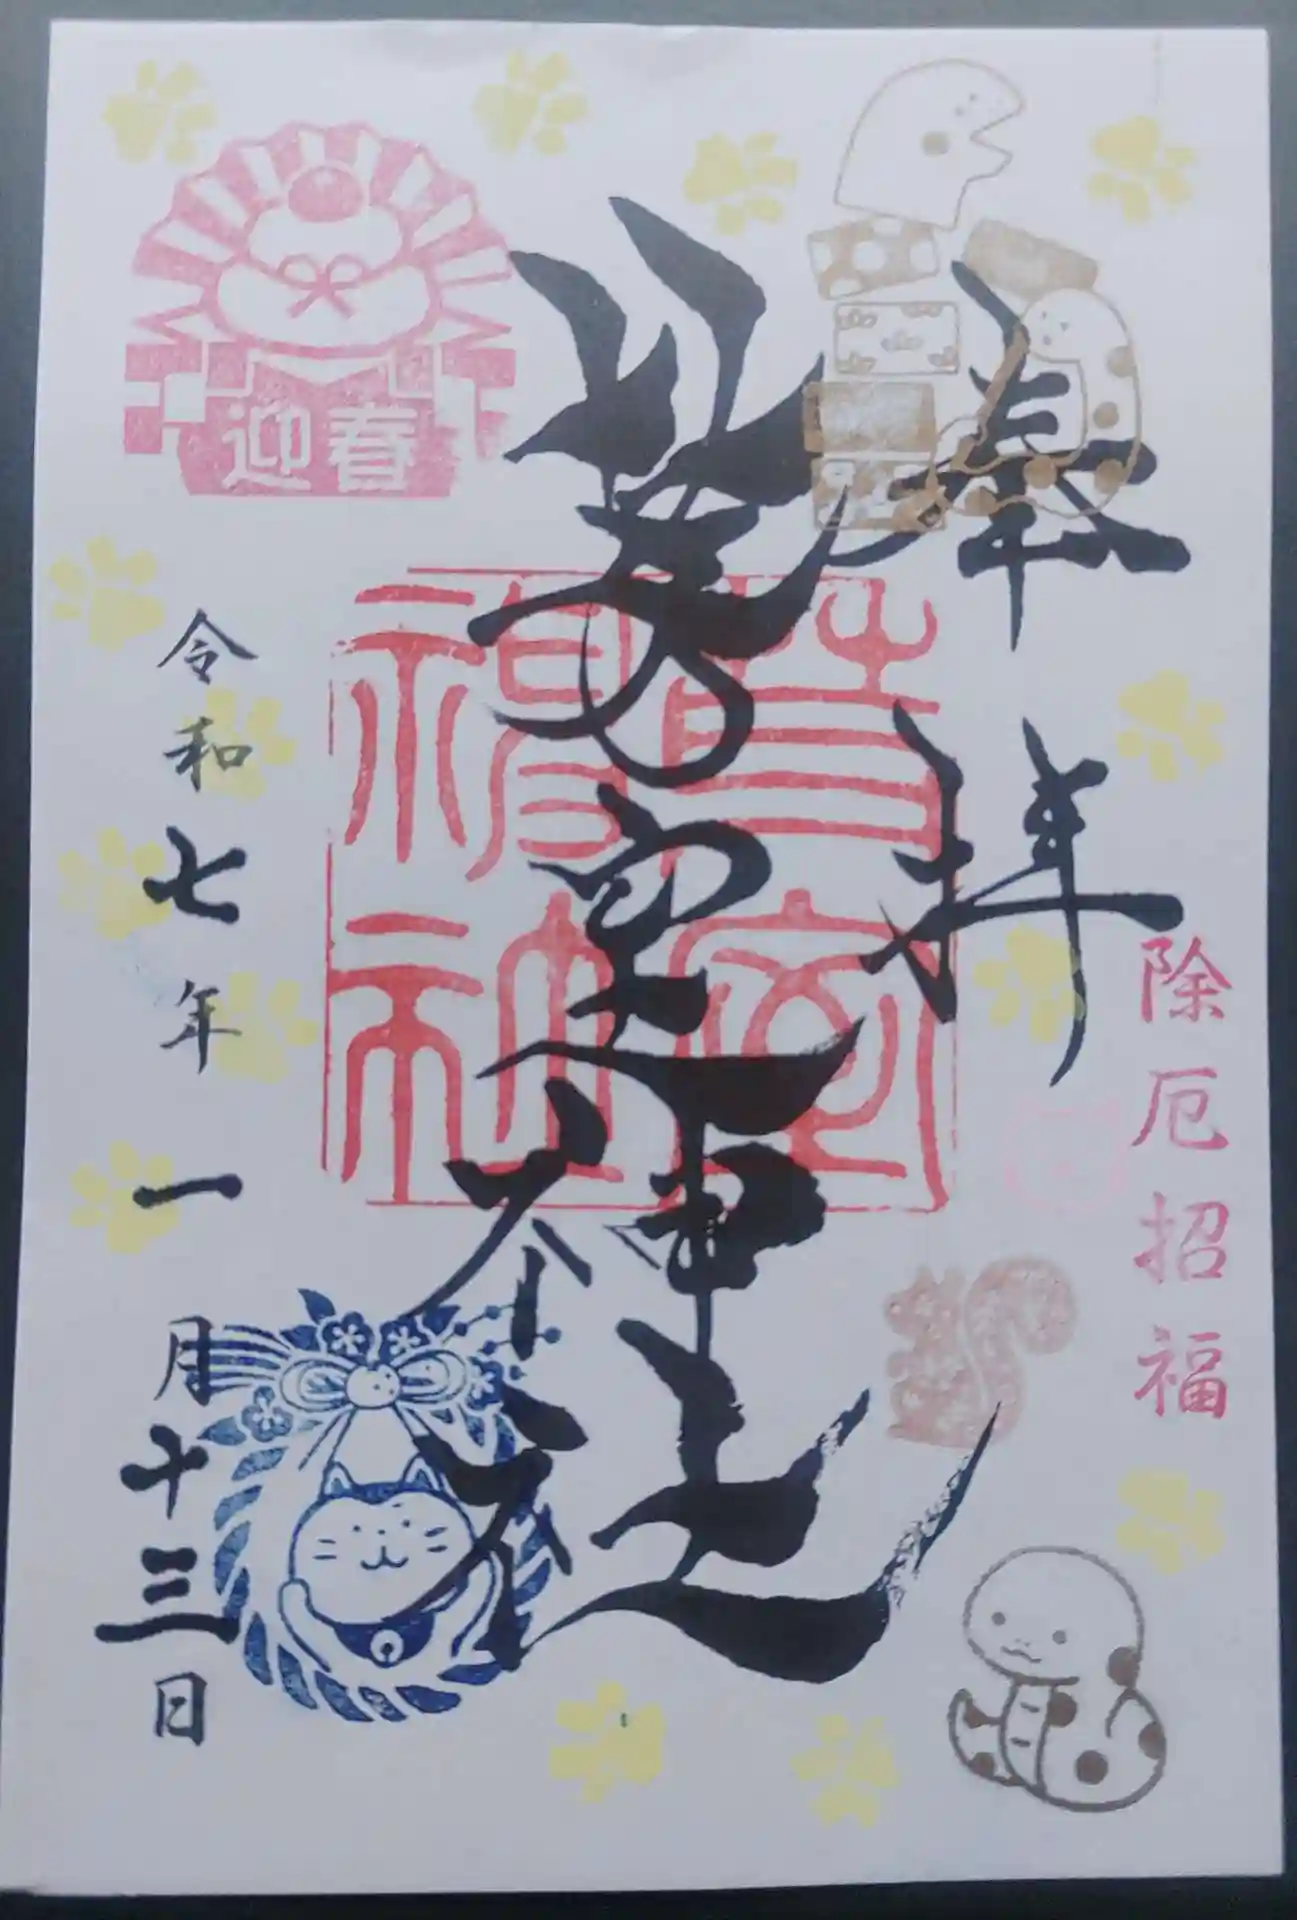 奉拝
神社
除厄招福
迎春
令和七年一月十三日